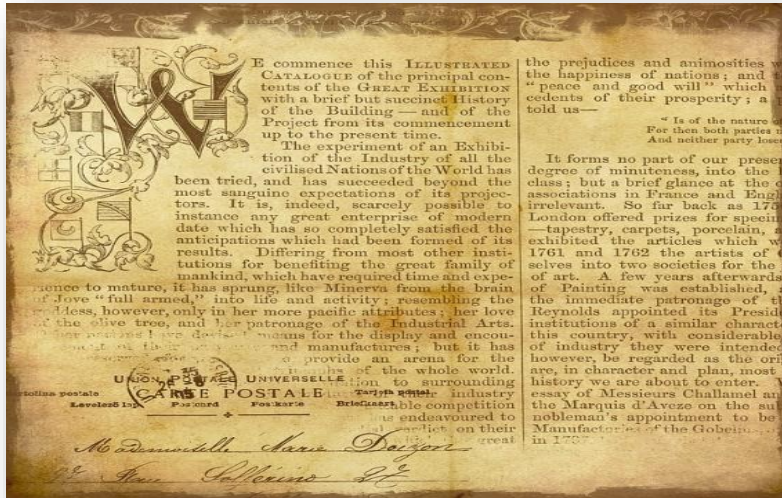 WE commence this ILLUSTRATED
CATALOGUE of the principal con-
tents of the GREAT EXHIBITION
with a brief but succinct History
of the Building — and of the
Project from its commencement
up to the present time.
The experiment of an Exhibi-
tion of the Industry of all the
civilised Nations of the World has
been tried, and has succeeded beyond the
most sanguine expectations of its projec-
tors. It is, indeed, scarcely possible to
instance any great enterprise of modern
date which has so completely satisfied the
anticipations which had been formed of its
results. Differing from most other insti-
tutions for benefiting the great family of
mankind, which have required time and expe-
rience to mature, it has sprung, like Minerva from the brain
of Jove "full armed," into life and activity; resembling the
goddess, however, only in her more pacific attributes; her love
of the olive tree, and her patronage of the Industrial Arts.
means for the display and encou-
and manufactures; but it has
provide an arena for the
of the whole world.
to surrounding
industry
competition
endeavoured to
on their
great
the prejudices and animosities
the happiness of nations; and
"peace and good will" which
cedents of their prosperity; a
told us—
"Is of the nature
For then both parties
And neither party
It forms no part of our
degree of minuteness, into the
class; but a brief glance at the
associations in France and
irrelevant. So far back as
London offered prizes for
—tapestry, carpets, porcelain,
exhibited the articles which
1761 and 1762 the artists of
selves into two societies for the
of art. A few years afterwards
of Painting was established,
the immediate patronage of
Reynolds appointed its
institutions of a similar
this country, with considerable
of industry they were intended
however, be regarded as the
are, in character and plan, most
history we are about to enter.
essay of Messieurs Challamel
the Marquis d'Aveze on the
nobleman's appointment to be
Manufactories of the
in
UNION POSTALE UNIVERSELLE
CARTE POSTALE
postale
Postcard Postkarte
Mademoiselle Marie
Rue Solferino